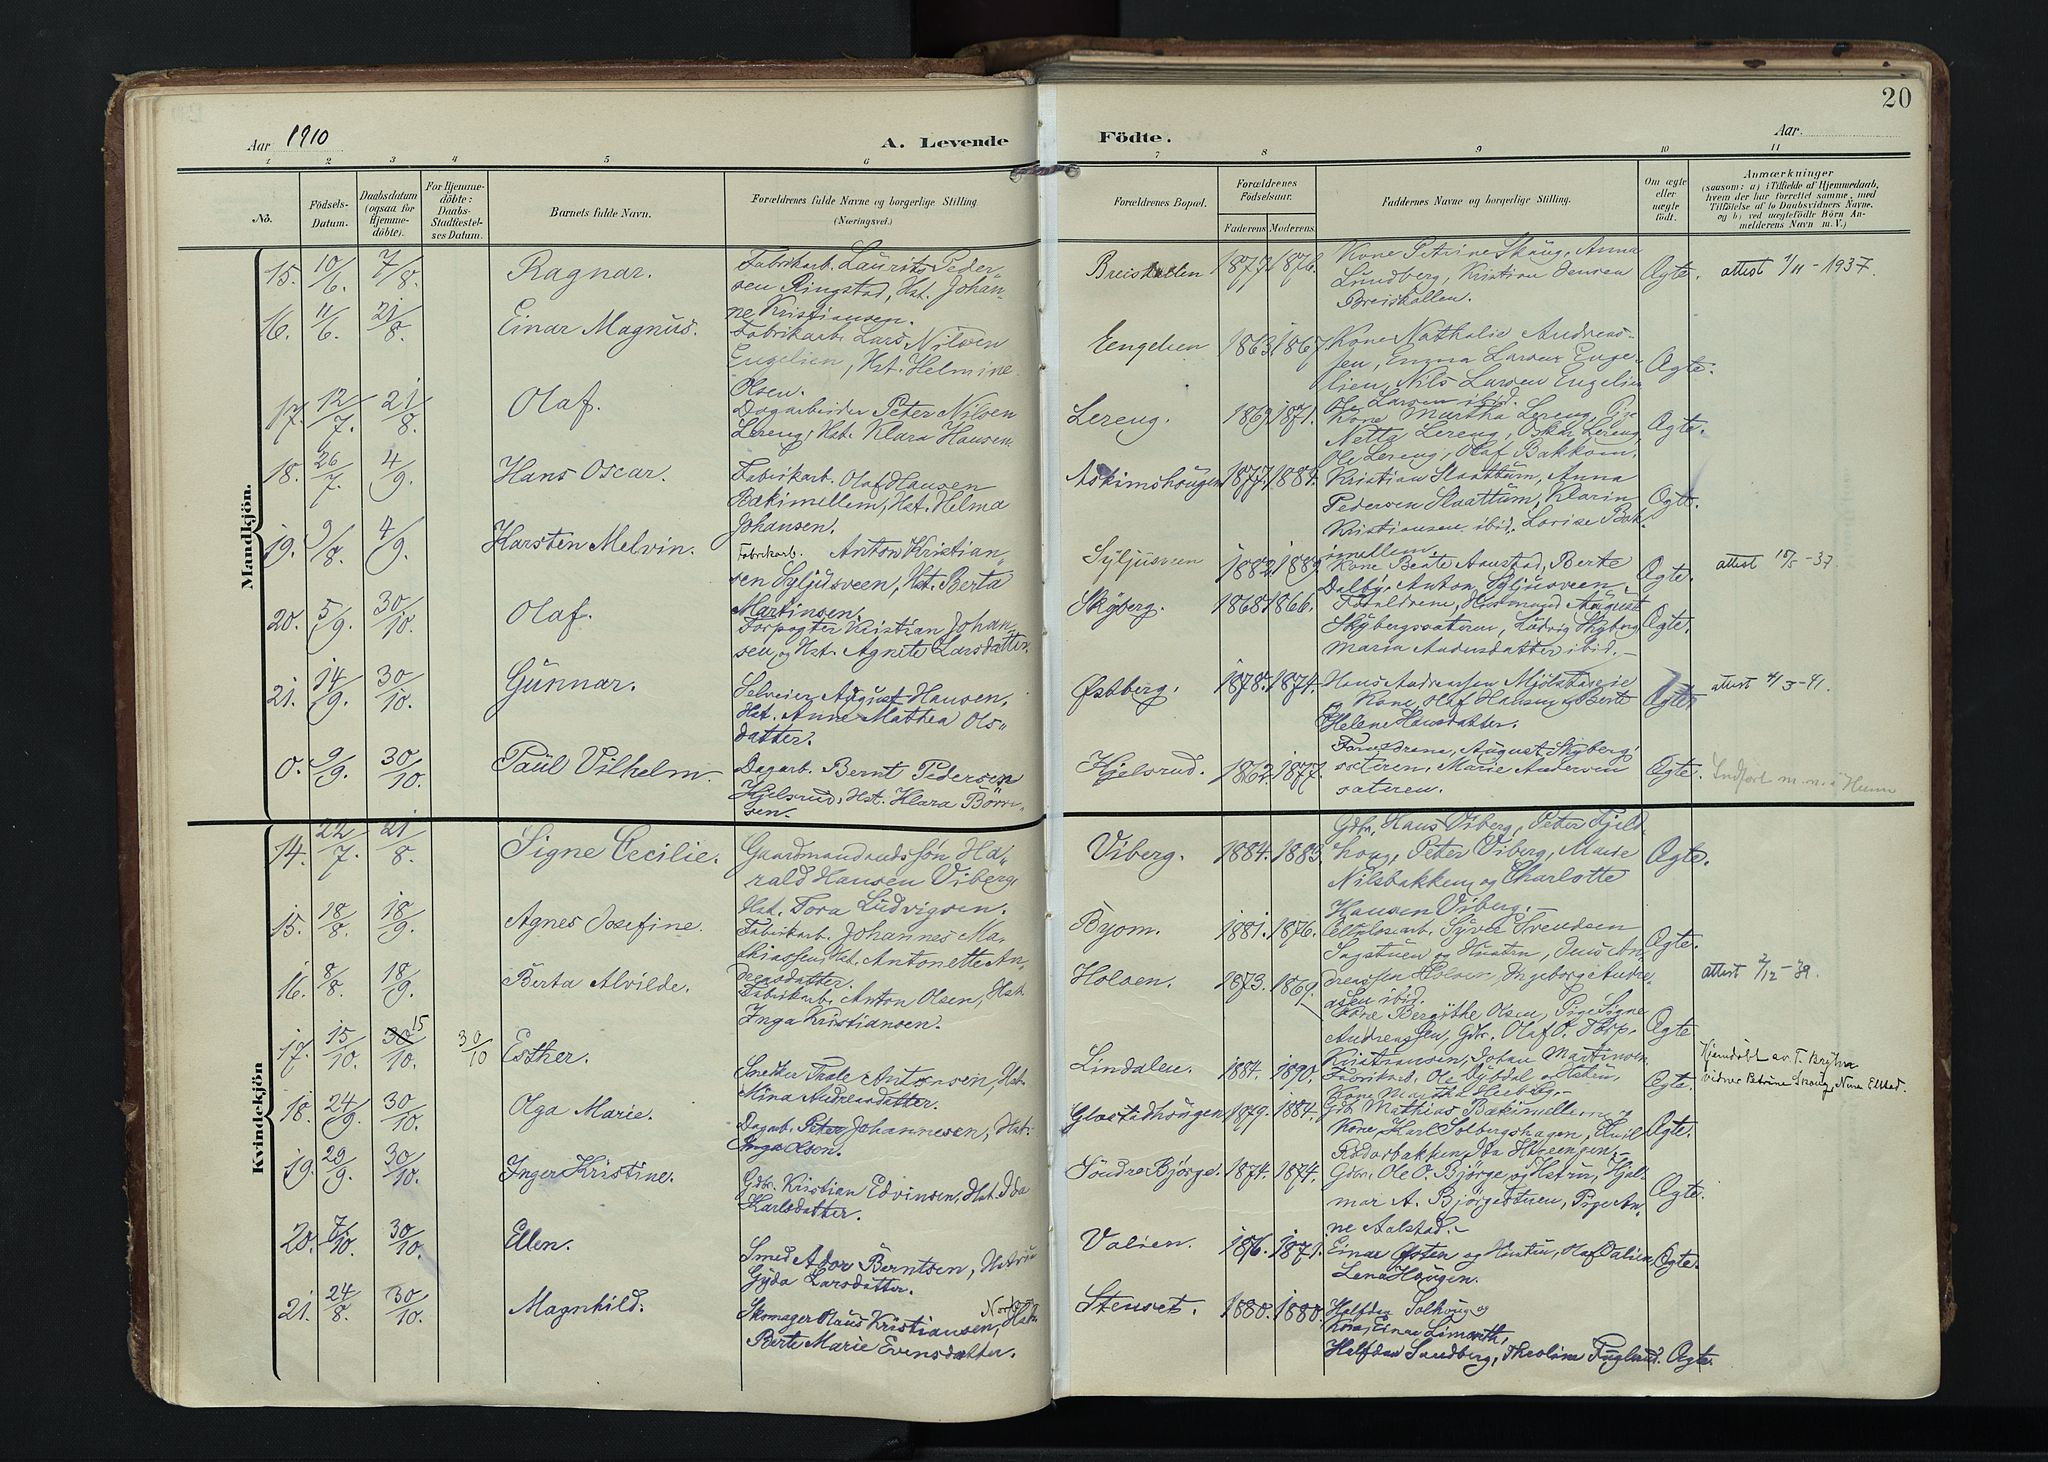 20
Aar 1910
A. Levende
Födte.
Aar.
1 2 3 4 5 6 7 8 9 10 11
No.
Födsels-
Datum.
Daabsdatum
(ogsaa for
Hjemme-
döbte).
For Hjemme-
döbte:
Daabs-
Stadfæstel-
ses Datum.
Barnets fulde Navn.
Forældrenes fulde Navne og borgerlige Stilling
(Næringsvei.)
Forældrenes Bopæl.
Forældrenes
Födselsaar.
Faderens Moderens.
Faddernes Navne og borgerlige Stilling.
Om ægte
eller
uægte
födt.
Anmærkninger
(saasom: a) i Tilfælde af Hjemmedaab,
hvem der har forrettet samme, med
Tilföielse af to Daabsvidners Navne,
og b) ved uægtefödte Börn An-
melderens Navn m. V.)
Mandkjön.
15. 10/6 7/8 Ragnar.
Fabrikarb. Laurits Peder-
sen Ringstad, Hst. Johan-
ne Kristiansen.
Breiskallen 1877. 1876.
Kone Petrine Skaug, Anna
Lundberg, Kristian Jensen
Breiskallen.
Ægte. attest 1/11 - 1937.
16. 11/6 21/8 Einar Magnus.
Fabrikarb. Lars Nilsen
Engelien, Hst. Helmine
Olsen.
Engelien 1863. 1867.
Kone Nathalie Andreas-
sen, Emma Larsen Enge-
lien, Nils Larsen Engelien
Ole Larsen ibid.
Ægte.
17. 12/7 21/8 Olaf.
Dagarbeider Peter Nilsen
Lereng, Hst. Klara Hansen
Lereng. 1869. 1871.
Kone Martha Lereng, Pige
Netta Lereng, Oskar Lereng,
Ole Lereng, Olaf Bakkom.
Ægte.
18. 26/7 4/9 Hans Oscar.
Fabrikarb. Olaf Hansen
Bækimellem, Hst. Helma
Johansen.
Askimshaugen 1877. 1881.
Kristian Slaattum, Anna
Pedersen Slaattum, Klarin
Kristiansen ibid., Lovise Bæk-
imellem.
Ægte.
19. 9/8 4/9 Karsten Melvin.
Fabrikarb. Anton Kristian-
sen Syljusveen, Hst. Berta
Martinsen.
Syljusveen 1882. 1889.
Kone Beate Aanstad, Berte
Dalby, Anton Syljusveen.
Ægte. attest 15/5 - 37
20. 5/9. 30/10. Olaf.
Forpagter Kristian Johan-
sen, og Hst. Agnete Larsdatter.
Skyberg. 1868. 1866.
Forældrene, Husmand August
Skybergsæteren, Ludvig Skyberg
Maria Andersdatter ibid.
Ægte.
21. 14/9. 30/10. Gunnar.
Selveier August Hansen,
Hst. Anne Mathea Ols-
datter.
Østberg. 1878. 1874.
Hans Andreassen
Kone, Olaf Hansen, Berte
Helene Hansdatter.
Ægte attest 4/3 - 41.
0. 9/9. 30/10. Paul Vilhelm.
Dagarb. Bernt Pedersen
Hjelsrud, Hst. Klara Börre-
sen.
Hjelsrud. 1862. 1877.
Forældrene, August Skyberg-
sæteren, Marie Andersen
sæteren.
Ægte. Indført m. n. i Hunn
Kvindekjön
14. 22/7 21/8. Signe Cecilie.
Gaardmandssøn Ha-
rald Hansen Viberg,
Hst. Tora Ludvigsen.
Viberg. 1884. 1883.
Gdbr. Hans Viberg, Peter Fjeld-
houg, Peter Viberg, Marie
Nilsbakken og Charlotte
Hansen Viberg.
Ægte.
15. 18/8. 18/9. Agnes Josefine.
Fabrikarb. Johannes Ma-
thiassen, Hst. Antonette An-
dreasdatter.
Byom. 1881. 1876.
Cellulosearb. Syver Svendsen
Sagstuen og Hustru, Jens An-
dreassen Holven, Ingeborg Andre-
asen ibid.
Ægte.
16. 8/8. 18/9. Berta Alvilde.
Fabrikarb. Anton Olsen, Hst.
Inga Kristiansen.
Holven. 1873. 1869.
Kone Bergithe Olsen, Pige Signe
Andreassen, Gdbr. Olaf O. Torp.
Ægte attest 2/12 - 39.
17. 15/10. 30 15/10. 30/10 Esther.
Snekker Trale Antonsen, Hst.
Mina Andreasdatter.
Lindalen. 1884. 1890.
Kristiansen, Johan Martinsen
Fabrikarb. Ole Dybdal og Hstru,
Kone Martha Heiberg.
Ægte.
Hjemdøbt av T. Bryhn
vidner Petrine Skaug, Nina Ellstad.
18. 24/9. 30/10. Olga Marie.
Dagarb. Peter Johannesen, Hst.
Inga Olsen.
Glæstadhaugen 1879. 1884.
Gdb. Mathias Bækimellem og
Kone, Karl Solbergshagen, Emil
Rødarbakken, Ida
Ægte.
19. 29/9. 30/10. Inger Kristine.
Gdbr. Kristian Edvinsen, Hst. Ida
Karlsdatter.
Søndre Bjørge. 1874. 1874.
Gdbr. Ole O. Bjørge, og Hstru, Hjal-
mar A. Bjørgestuen, Pige An-
ne Aalstad.
Ægte.
20. 7/10. 30/10. Ellen.
Smed Ador Berntsen, Hstru
Gyda Larsdatter.
Valien. 1876. 1871.
Einar Østen og Hustru, Olaf Dalien,
Lena Haugen.
Ægte.
21. 24/8. 30/10. Magnhild.
Skomager Olaus Kristiansen, Hst.
Berte Marie Evensdatter.
Stenset. 1880. 1880.
Halfdan Solhoug og
Kone, Einar
Halfdan Sandberg, Theoline Fuglerud. Ægte.